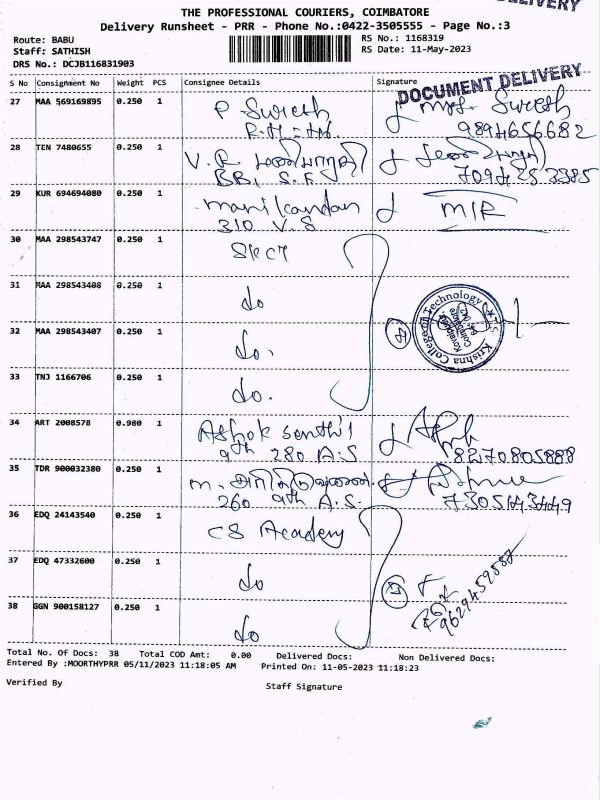 THE PROFESSIONAL COURIERS, COIMBATORE
Delivery Runsheet - PRR - Phone No.:0422-3505555 - Page No.:3
DELIVERY
Route: BABU
RS No.: 1168319
Staff: SATHISH
RS Date: 11-May-2023
DRS No.: DCJB116831903
S No Consignment No Weight PCS Consignee Details Signature
DOCUMENT DELIVERY
27 MAA 569169895 0.250 1 P. Suresh Suresh
9894656682
28 TEN 7480655 0.250 1 V. R.
BB, S.F
29 KUR 694694080 0.250 1 Manikandan MIR
310 V.S
30 MAA 298543747 0.250 1 SKCT
31 MAA 298543408 0.250 1 do
32 MAA 298543407 0.250 1 do.
Krishna College of Technology
Coimbatore
33 TNJ 1166706 0.250 1 do.
34 ART 2008578 0.980 1 Ashok Senthil
9th 280 A.S 8270805888
35 TDR 900032380 0.250 1 M.
260 9th A.S.
36 EDQ 24143540 0.250 1 CS Academy
37 EDQ 47332600 0.250 1 do
9629459587
38 GGN 900158127 0.250 1 do
Total No. Of Docs: 38 Total COD Amt: 0.00 Delivered Docs: Non Delivered Docs:
Entered By :MOORTHYPRR 05/11/2023 11:18:05 AM Printed On: 11-05-2023 11:18:23
Verified By Staff Signature